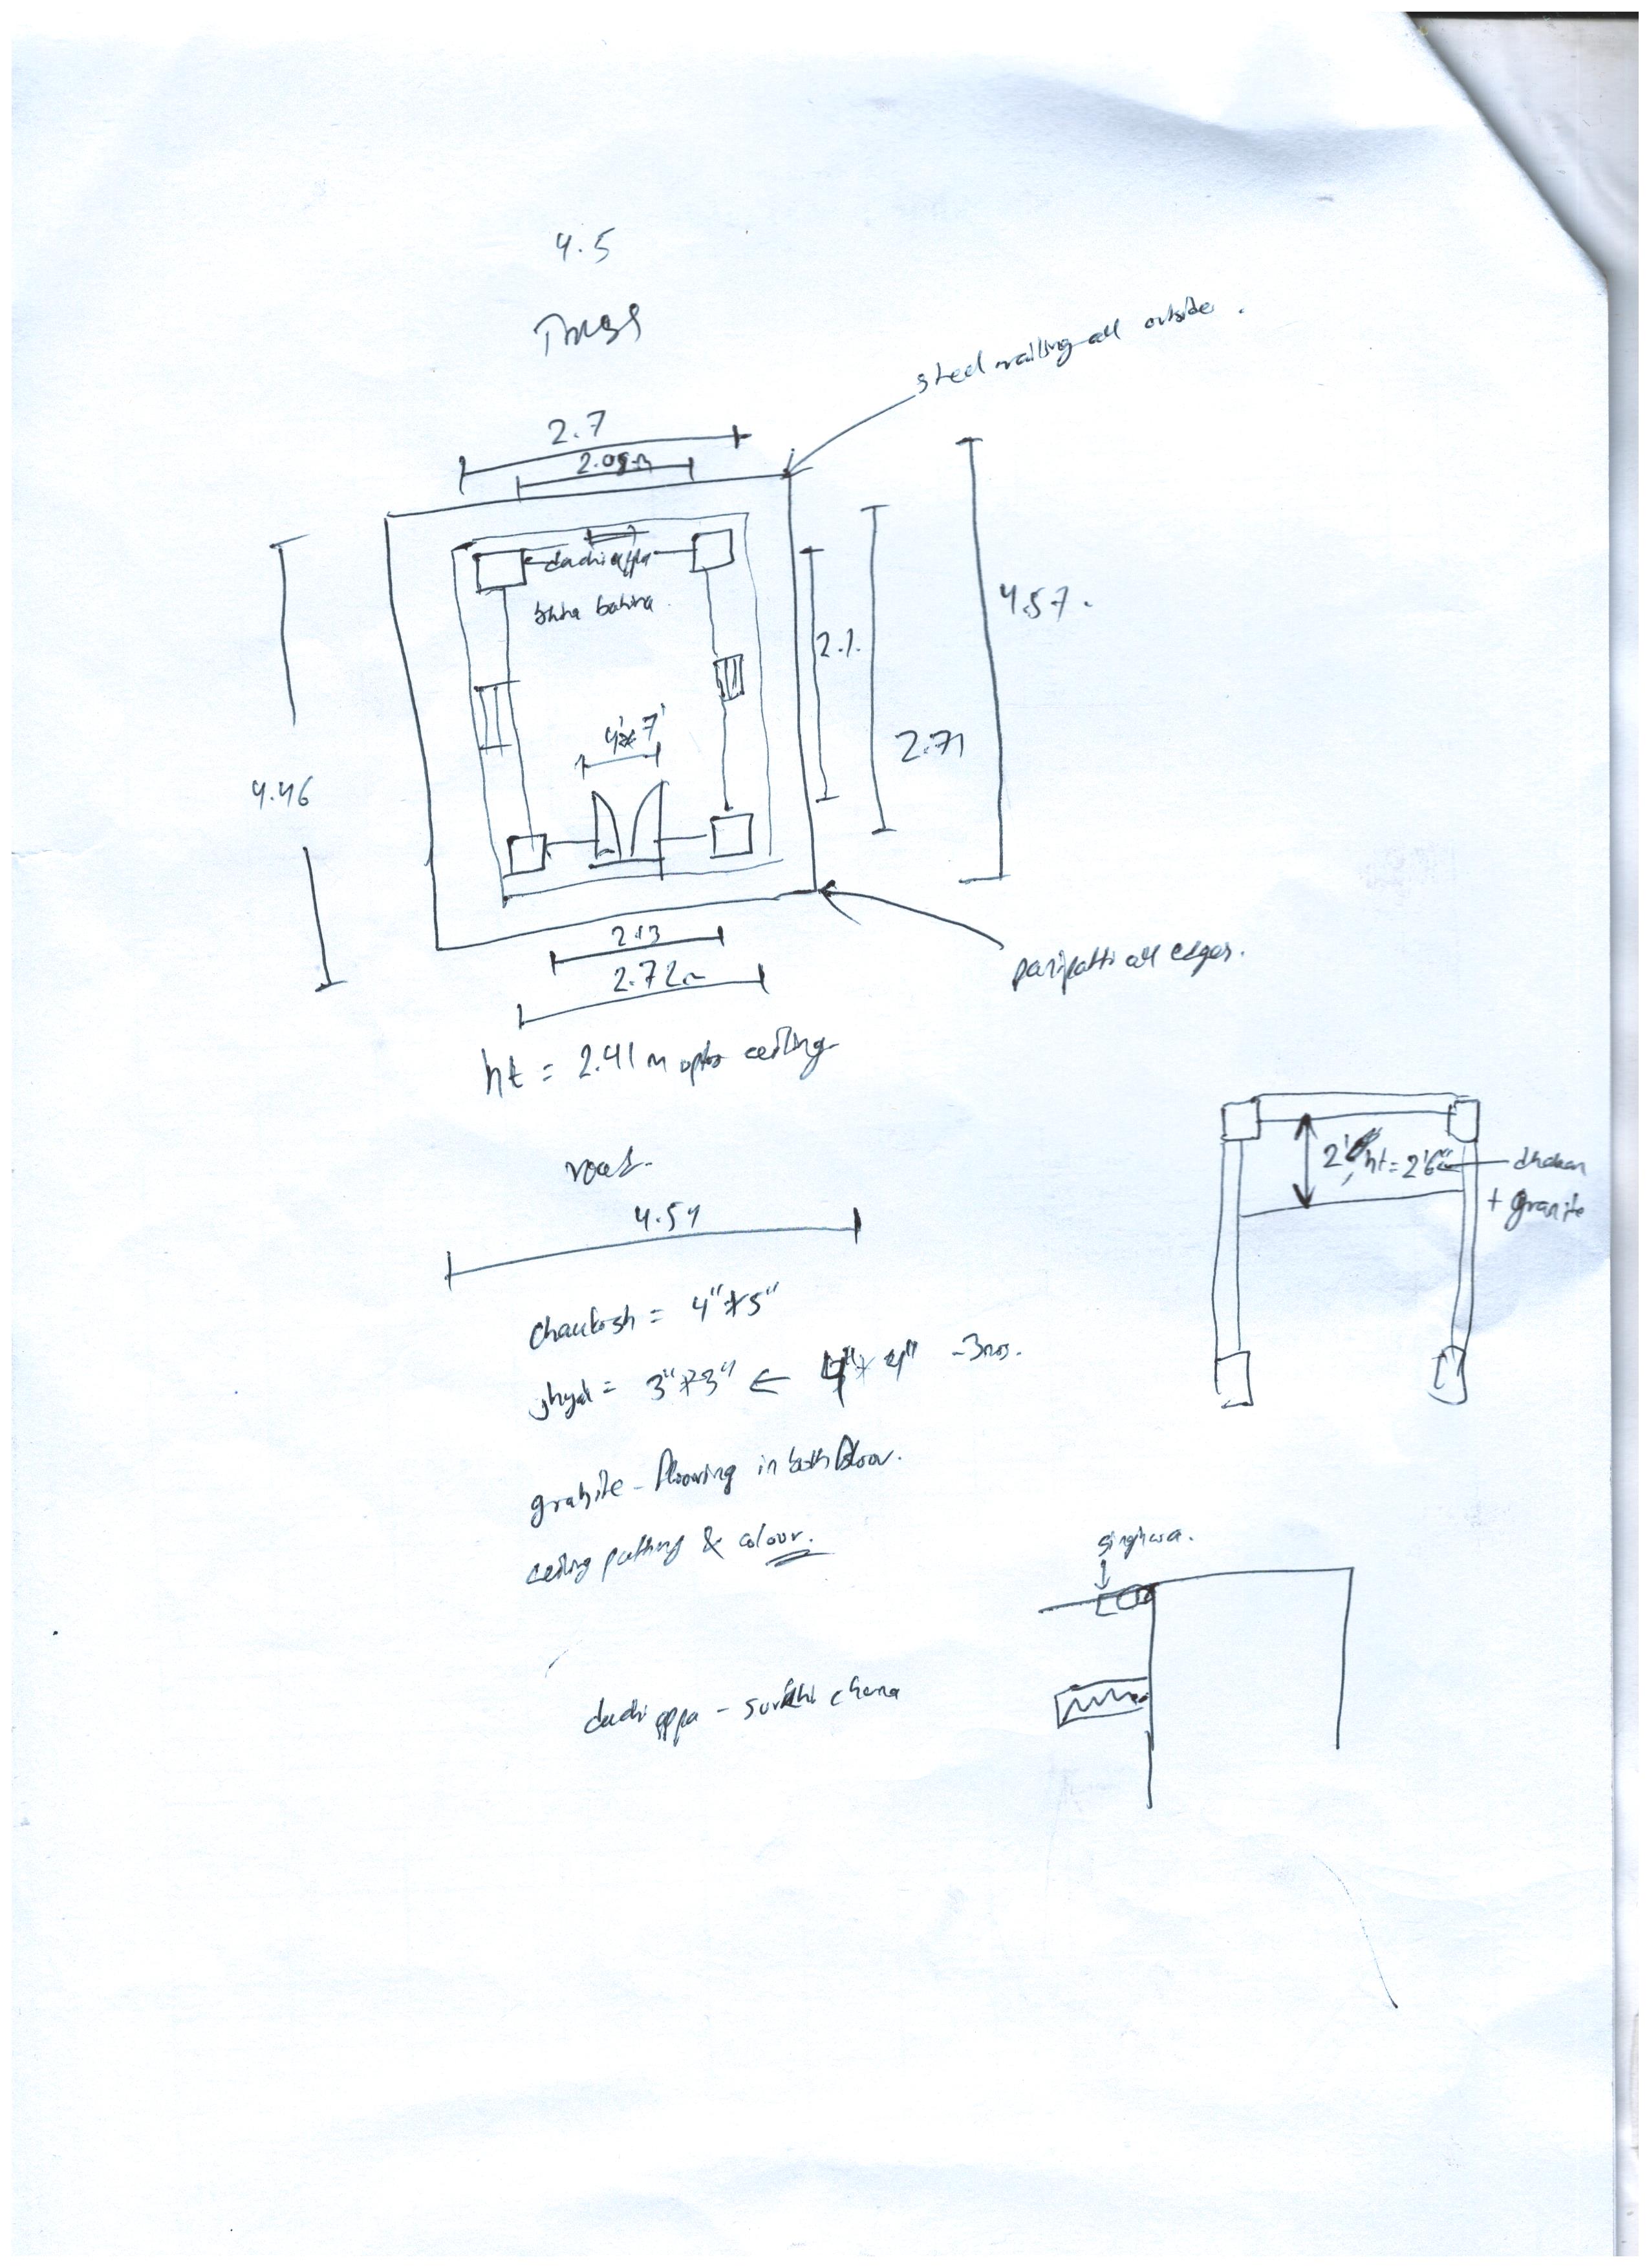 4.5
steel railing all outside.
2.7
2.08m
dachi appa
bhitra bahira.
4.57.
2.1.
4'*7'
2.71
4.46
2.13
2.72m
paripatti all edges.
ht = 2.41 m upto ceiling
2' ht = 2'6"
+ granite
road.
4.54
Chaukosh = 4"*5"
jhyal = 3"*3" ← 4"* 4" -3nos.
granite - flooring in both floor.
ceiling putting & colour.
singhara.
dachi appa - surkhi chuna